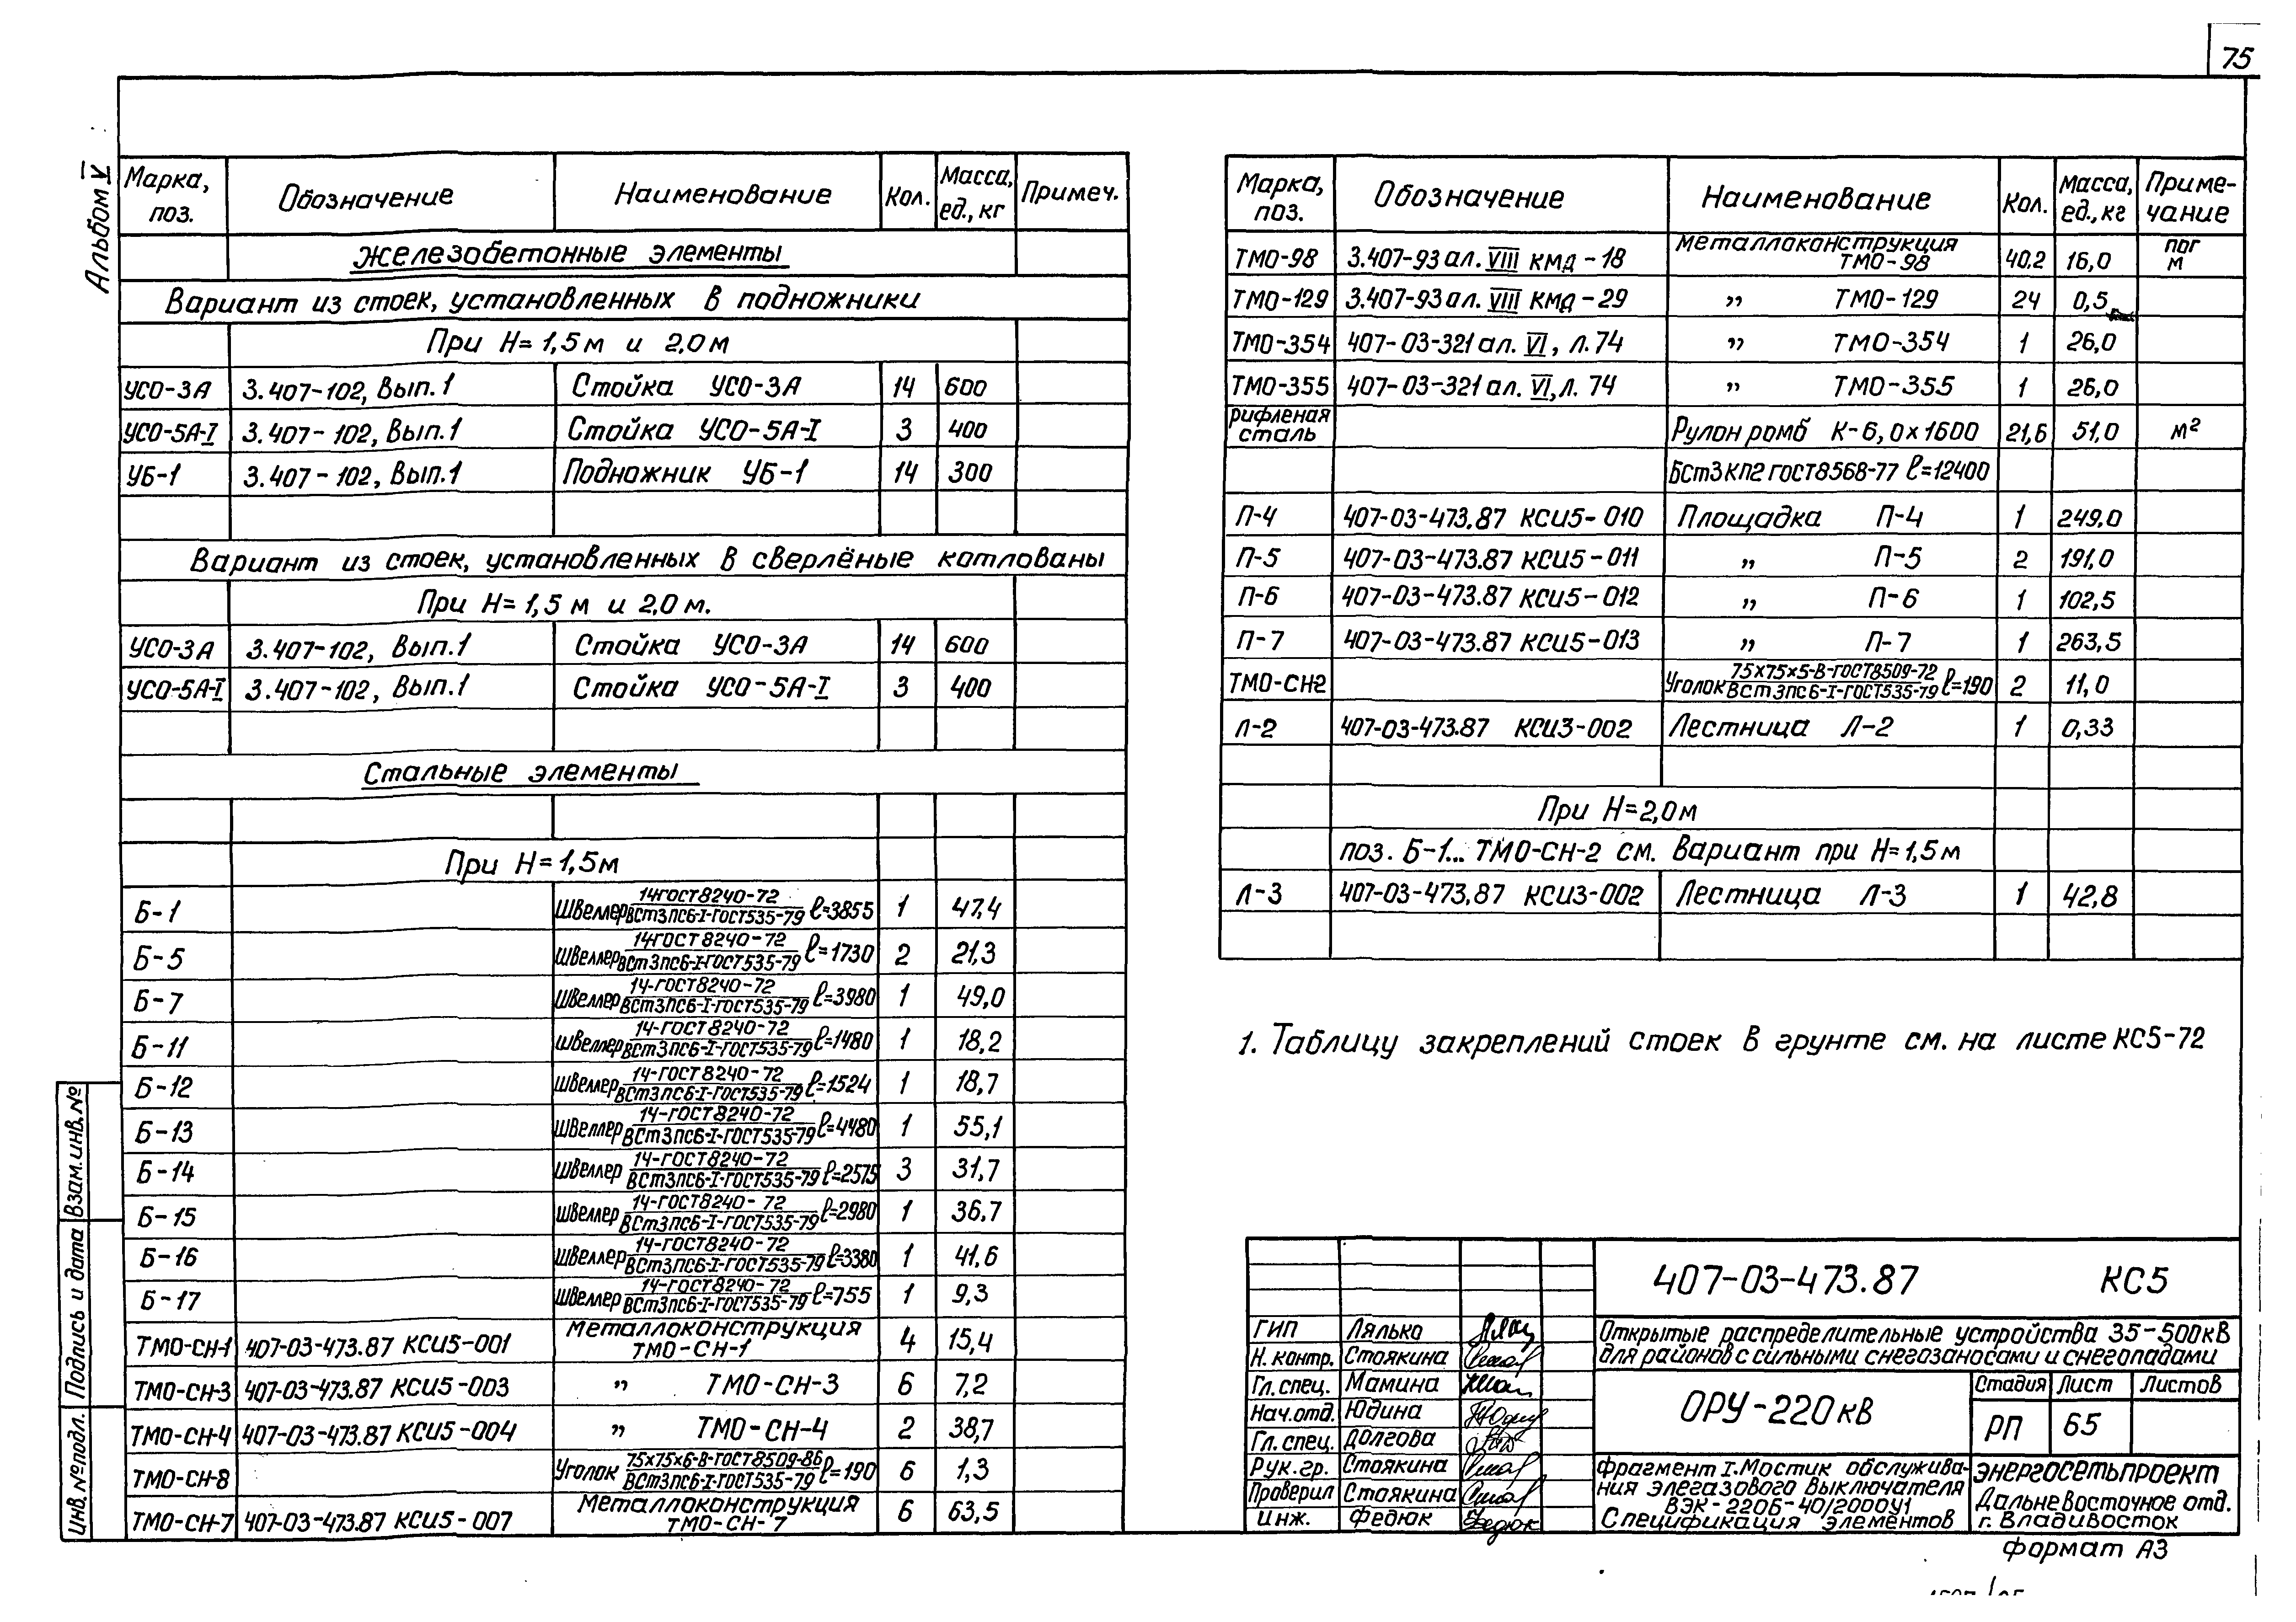 75
Альбом V
Марка, поз. Обозначение Наименование Кол. Масса, ед., кг Примеч.
Железобетонные элементы
Вариант из стоек, установленных в подножники
При Н=1,5м и 2,0м
УСО-3А 3.407-102, Вып.1 Стойка УСО-3А 14 600
УСО-5А-I 3.407-102, Вып.1 Стойка УСО-5А-I 3 400
УБ-1 3.407-102, Вып.1 Подножник УБ-1 14 300
Вариант из стоек, установленных в сверлёные котлованы
При Н=1,5м и 2,0м.
УСО-3А 3.407-102, Вып.1 Стойка УСО-3А 14 600
УСО-5А-I 3.407-102, Вып.1 Стойка УСО-5А-I 3 400
Стальные элементы
При Н=1,5м
Б-1 Швеллер 14ГОСТ8240-72 / ВСт3пс6-I-ГОСТ535-79 ℓ=3855 1 47,4
Б-5 Швеллер 14ГОСТ8240-72 / ВСт3пс6-I-ГОСТ535-79 ℓ=1730 2 21,3
Б-7 Швеллер 14-ГОСТ8240-72 / ВСт3пс6-I-ГОСТ535-79 ℓ=3980 1 49,0
Б-11 Швеллер 14-ГОСТ8240-72 / ВСт3пс6-I-ГОСТ535-79 ℓ=1480 1 18,2
Б-12 Швеллер 14-ГОСТ8240-72 / ВСт3пс6-I-ГОСТ535-79 ℓ=1524 1 18,7
Б-13 Швеллер 14-ГОСТ8240-72 / ВСт3пс6-I-ГОСТ535-79 ℓ=4480 1 55,1
Б-14 Швеллер 14-ГОСТ8240-72 / ВСт3пс6-I-ГОСТ535-79 ℓ=2575 3 31,7
Б-15 Швеллер 14-ГОСТ8240-72 / ВСт3пс6-I-ГОСТ535-79 ℓ=2980 1 36,7
Б-16 Швеллер 14-ГОСТ8240-72 / ВСт3пс6-I-ГОСТ535-79 ℓ=3380 1 41,6
Б-17 Швеллер 14-ГОСТ8240-72 / ВСт3пс6-I-ГОСТ535-79 ℓ=755 1 9,3
ТМО-СН-1 407-03-473.87 КСИ5-001 Металлоконструкция ТМО-СН-1 4 15,4
ТМО-СН-3 407-03-473.87 КСИ5-003 „ ТМО-СН-3 6 7,2
ТМО-СН-4 407-03-473.87 КСИ5-004 „ ТМО-СН-4 2 38,7
ТМО-СН-8 Уголок 75х75х6-В-ГОСТ8509-86 / ВСт3пс6-I-ГОСТ535-79 ℓ=190 6 1,3
ТМО-СН-7 407-03-473.87 КСИ5-007 Металлоконструкция ТМО-СН-7 6 63,5
Марка, поз. Обозначение Наименование Кол. Масса, ед., кг Примечание
ТМО-98 3.407-93 ал. VIII КМД-18 Металлоконструкция ТМО-98 40.2 16,0 пог м
ТМО-129 3.407-93 ал. VIII КМД-29 „ ТМО-129 24 0,5
ТМО-354 407-03-321 ал. VI, л. 74 „ ТМО-354 1 26,0
ТМО-355 407-03-321 ал. VI, л. 74 „ ТМО-355 1 26,0
рифленая сталь Рулон ромб К-6,0х1600 21,6 51,0 м²
БСт3КП2 ГОСТ8568-77 ℓ=12400
П-4 407-03-473.87 КСИ5-010 Площадка П-4 1 249,0
П-5 407-03-473.87 КСИ5-011 „ П-5 2 191,0
П-6 407-03-473.87 КСИ5-012 „ П-6 1 102,5
П-7 407-03-473.87 КСИ5-013 „ П-7 1 263,5
ТМО-СН-2 Уголок 75х75х5-В-ГОСТ8509-72 / ВСт3пс6-I-ГОСТ535-79 ℓ=190 2 11,0
Л-2 407-03-473.87 КСИ3-002 Лестница Л-2 1 0,33
При Н=2,0м
поз. Б-1... ТМО-СН-2 см. Вариант при Н=1,5м
Л-3 407-03-473,87 КСИ3-002 Лестница Л-3 1 42,8
1. Таблицу закреплений стоек в грунте см. на листе КС5-72
407-03-473.87 КС5
ГИП Лялько
Н. контр. Стоякина
Гл. спец. Мамина
Нач. отд. Юдина
Гл. спец. Долгова
Рук. гр. Стоякина
Проверил Стоякина
Инж. Федюк
Открытые распределительные устройства 35-500кВ
для районов с сильными снегозаносами и снегопадами
ОРУ-220кВ
Стадия Лист Листов
РП 65
Фрагмент I. Мостик обслужива-
ния элегазового выключателя
ВЭК-220Б-40/2000У1
Спецификация элементов
Энергосетьпроект
Дальневосточное отд.
г. Владивосток
формат А3
Инв. № подл. Подпись и дата Взам. инв. №